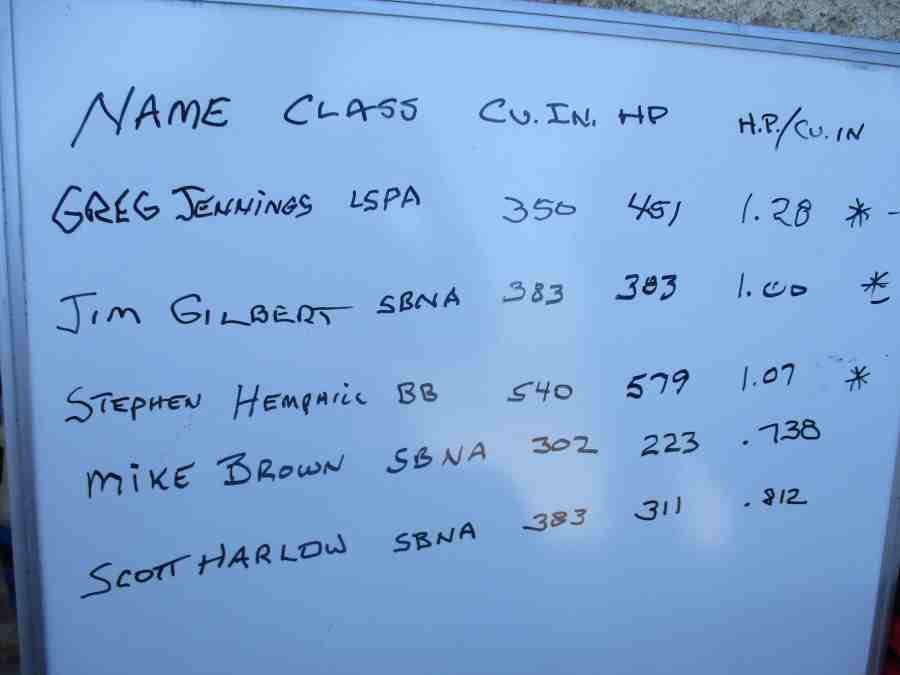 NAME CLASS CU.IN. HP H.P./CU.IN
GREG JENNINGS LSPA 350 451 1.28 * -
JIM GILBERT SBNA 383 383 1.00 *
STEPHEN HEMPHILL BB 540 579 1.07 *
MIKE BROWN SBNA 302 223 .738
SCOTT HARLOW SBNA 383 311 .812